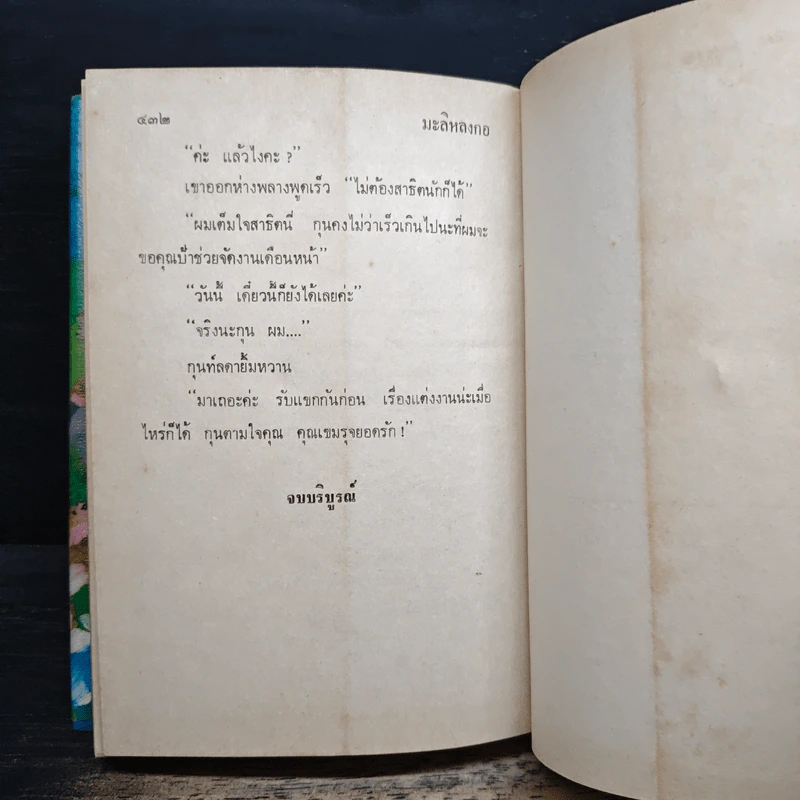 ๔๓๒
มะลิหลงกอ
“ค่ะ แล้วไงคะ ?”
เขาออกห่างพลางพูดเร็ว “ไม่ต้องสาธิตนักก็ได้”
“ผมเต็มใจสาธิตนี่ กุนคงไม่ว่าเร็วเกินไปนะที่ผมจะ
ขอคุณป้าช่วยจัดงานเดือนหน้า”
“วันนี้ เดี๋ยวนี้ก็ยังได้เลยค่ะ”
“จริงนะกุน ผม....”
กุนท์ลดายิ้มหวาน
“มาเถอะค่ะ รับแขกกันก่อน เรื่องแต่งงานน่ะเมื่อ
ไหร่ก็ได้ กุนตามใจคุณ คุณเขมรุจยอดรัก !”
จบบริบูรณ์